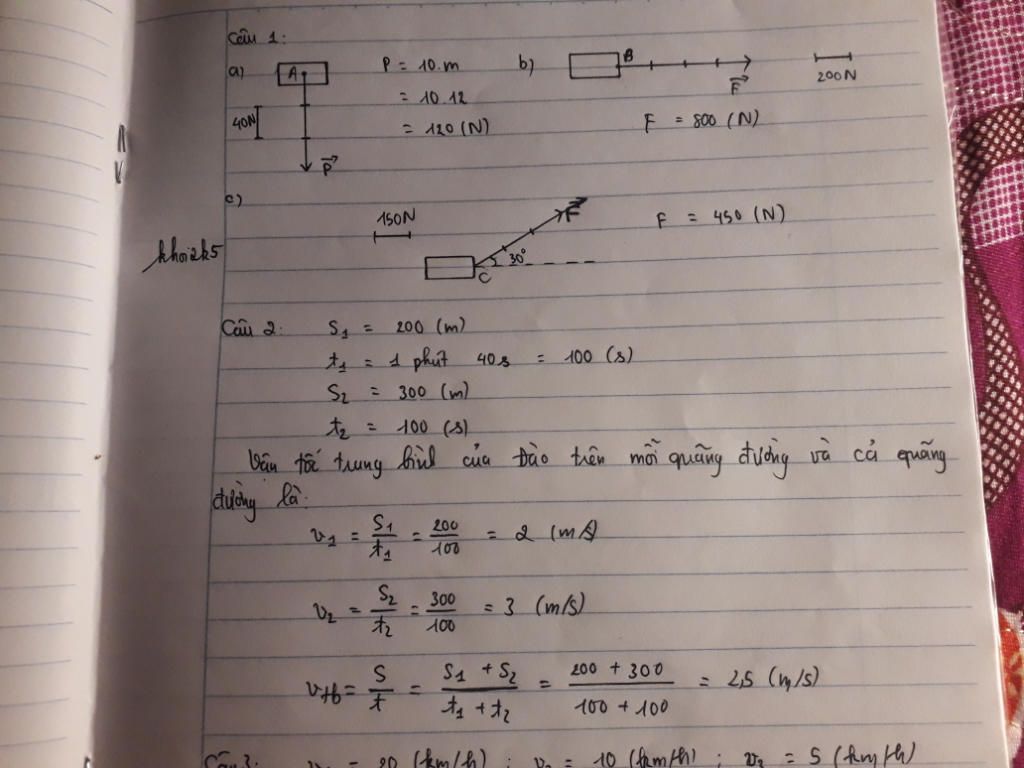 Câu 1:
a) A P = 10.m b) B
= 10.12 F 200N
40N = 120 (N) F = 800 (N)
P
c)
150N F F = 450 (N)
khoi2k5 30°
C
Câu 2: S1 = 200 (m)
t1 = 1 phút 40s = 100 (s)
S2 = 300 (m)
t2 = 100 (s)
Vận tốc trung bình của Đào trên mỗi quãng đường và cả quãng
đường là:
v1 = S1/t1 = 200/100 = 2 (m/s)
v2 = S2/t2 = 300/100 = 3 (m/s)
vtb = S/t = S1 + S2/t1 + t2 = 200 + 300/100 + 100 = 2,5 (m/s)
Câu 3: v1 = 20 (km/h) ; v2 = 10 (km/h) ; v3 = 5 (km/h)